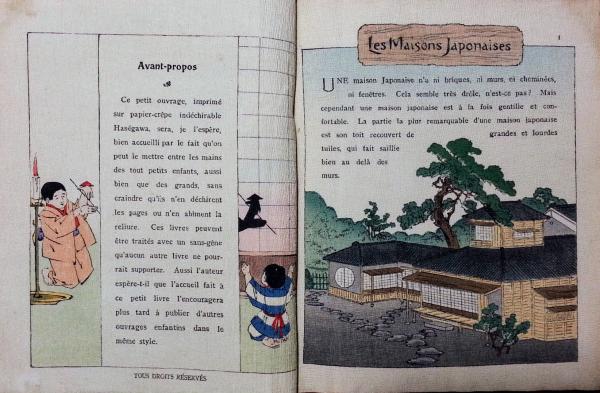 Avant-propos
Ce petit ouvrage, imprimé
sur papier-crêpe indéchirable
Haségawa, sera, je l'espère,
bien accueilli par le fait qu'on
peut le mettre entre les mains
des tout petits enfants, aussi
bien que des grands, sans
craindre qu'ils n'en déchirent
les pages ou n'en abîment la
reliure. Ces livres peuvent
être traités avec un sans-gêne
qu'aucun autre livre ne pour-
rait supporter. Aussi l'auteur
espère-t-il que l'accueil fait à
ce petit livre l'encouragera
plus tard à publier d'autres
ouvrages enfantins dans le
même style.
TOUS DROITS RÉSERVÉS
Les Maisons Japonaises
1
UNE maison Japonaise n'a ni briques, ni murs, ni cheminées,
ni fenêtres. Cela semble très drôle, n'est-ce pas? Mais
cependant une maison japonaise est à la fois gentille et con-
fortable. La partie la plur remarquable d'une maison japonaise
est son toit recouvert de grandes et lourdes
tuiles, qui fait saillie
bien au delà des
murs.